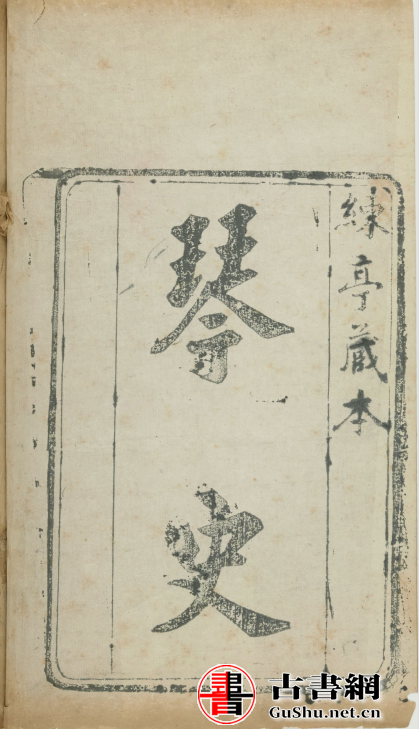 練亭藏本
琴史
書 古書網
GuShu.net.cn